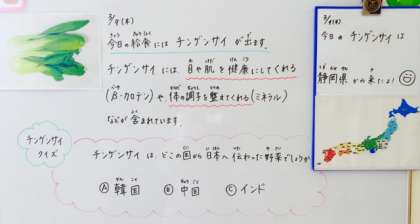 3/9(木)
今日の給食には チンゲンサイ が出ます。
チンゲンサイには、目や肌を健康にしてくれる
(β-カロテン)や、体の調子を整えてくれる(ミネラル)
などが含まれています。
チンゲンサイ
クイズ
チンゲンサイは、どこの国から日本へ伝わった野菜でしょうか
Ⓐ 韓国 Ⓑ 中国 Ⓒ インド
今日の チンゲンサイ は
静岡県からの来たよ!